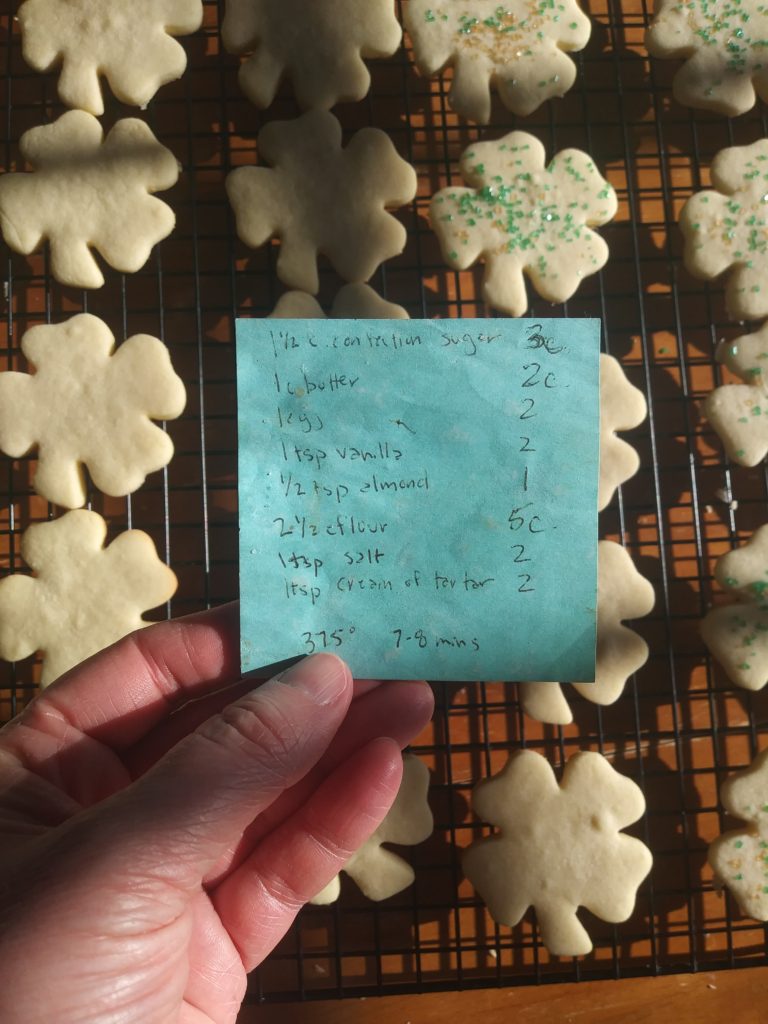 1½ c. confection sugar 3c.
1c butter 2c.
1egg 2
1tsp vanilla 2
½ tsp almond 1
2½ cflour 5c.
1tsp salt 2
1tsp cream of tartar 2
375° 7-8 mins